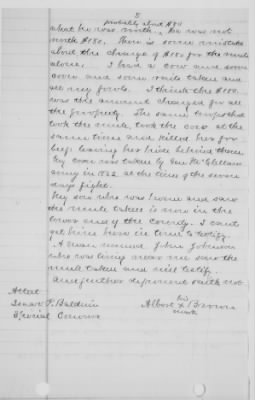 8
probably about $80
what he was worth, he was not
worth $180. There is some mistake
about the charge of $180 for the mule
alone. I had a cow and some
corn and some oats taken and
all my fowls. I think the $180
was the amount charged for all
the property. The same
the mule took the cow at the
same time and killed her for
beef leaving her hide behind them
My corn was taken by Gen McClellans
army in 1862 at the time of the seven
days fight.
My son who was home and saw
the mule taken is now in the
lower end of the County. I cant
get him here in time to testify.
A man named John Johnson
who was living near me saw the
mule taken and will testify.
And further deponent saith not
Attest
Isaac P. Baldwin
Special Commr
his
Albert X Brown
mark